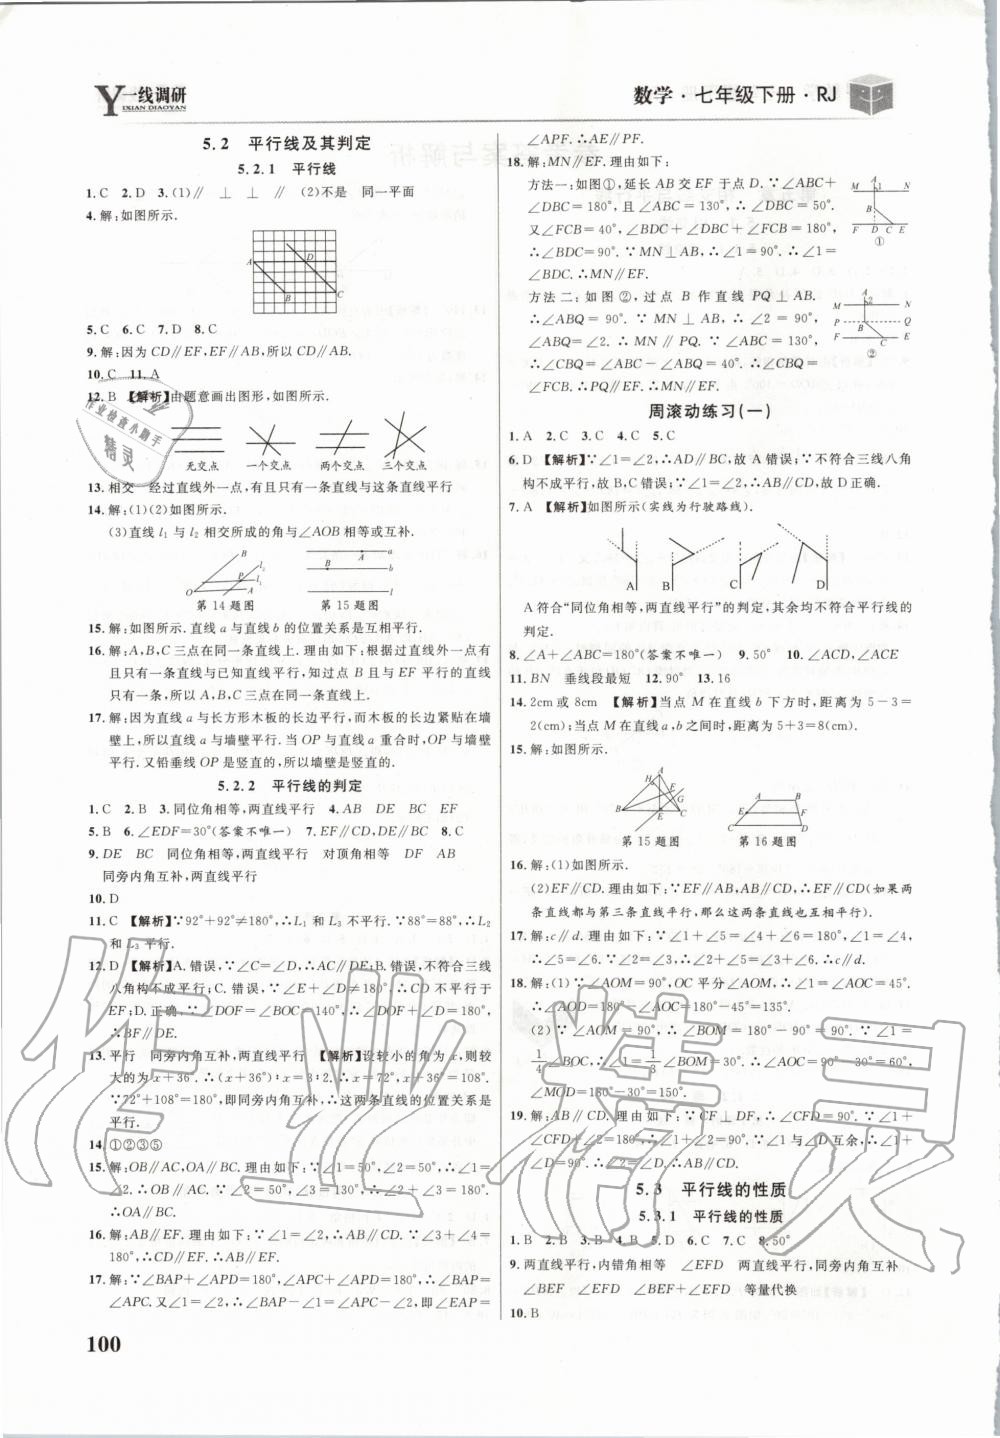 一线调研
YIXIAN DIAOYAN
数学·七年级下册·RJ
5.2 平行线及其判定
5.2.1 平行线
1.C 2.D 3.(1)∥ ⊥ ⊥ ∥ (2)不是 同一平面
4.解:如图所示.
A
D
B
C
5.C 6.C 7.D 8.C
9.解:因为CD∥EF,EF∥AB,所以CD∥AB.
10.C 11.A
12.B 【解析】由题意画出图形,如图所示.
无交点 一个交点 两个交点 三个交点
13.相交 经过直线外一点,有且只有一条直线与这条直线平行
14.解:(1)(2)如图所示.
(3)直线l₁与l₂相交所成的角与∠AOB相等或互补.
B l₂ P l₁ O A
A a B b l
第14题图 第15题图
15.解:如图所示.直线a与直线b的位置关系是互相平行.
16.解:A,B,C三点在同一条直线上.理由如下:根据过直线外一点有
且只有一条直线与已知直线平行,知过点B且与EF平行的直线
只有一条,所以A,B,C三点在同一条直线上.
17.解:因为直线a与长方形木板的长边平行,而木板的长边紧贴在墙
壁上,所以直线a与墙壁平行.当OP与直线a重合时,OP与墙壁
平行.又铅垂线OP是竖直的,所以墙壁是竖直的.
5.2.2 平行线的判定
1.C 2.B 3.同位角相等,两直线平行 4.AB DE BC EF
5.B 6.∠EDF=30°(答案不唯一) 7.EF∥CD,DE∥BC 8.C
9.DE BC 同位角相等,两直线平行 对顶角相等 DF AB
同旁内角互补,两直线平行
10.D
11.C 【解析】∵92°+92°≠180°,∴L₁和L₃不平行.∵88°=88°,∴L₂
和L₃平行.
12.D 【解析】A.错误,∵∠C=∠D,∴AC∥DF;B.错误,不符合三线
八角构不成平行;C.错误,∵∠E+∠D≠180°,∴CD不平行于
EF;D.正确.∵∠DOF=∠BOC=140°,∴∠DOF+∠D=180°,
∴BF∥DE.
13.平行 同旁内角互补,两直线平行 【解析】设较小的角为x,则较
大的为x+36°.∴(x+36°):x=3:2.∴x=72°,x+36°=108°.
∵72°+108°=180°,即同旁内角互补,∴这两条直线的位置关系是
平行.
14.①②③⑤
15.解:OB∥AC,OA∥BC.理由如下:∵∠1=50°,∠2=50°,∴∠1=
∠2.∴OB∥AC.∵∠2=50°,∠3=130°,∴∠2+∠3=180°.
∴OA∥BC.
16.解:AB∥EF.理由如下:∵∠1=∠2,∴AB∥CD.∵∠3+∠4=
180°,∴CD∥EF.∴AB∥EF.
17.解:∵∠BAP+∠APD=180°,∠APC+∠APD=180°,∴∠BAP=
∠APC.又∵∠1=∠2,∴∠BAP-∠1=∠APC-∠2,即∠EAP=
100
∠APF.∴AE∥PF.
18.解:MN∥EF.理由如下:
方法一:如图①,延长AB交EF于点D.∵∠ABC+
∠DBC=180°,且∠ABC=130°,∴∠DBC=50°.
又∠FCB=40°,∠BDC+∠DBC+∠FCB=180°,
∴∠BDC=90°.∵MN⊥AB,∴∠1=90°.∴∠1=
∠BDC.∴MN∥EF.
M A N 1 B F D C E ①
方法二:如图②,过点B作直线PQ⊥AB.
∴∠ABQ=90°.∵MN⊥AB,∴∠2=90°,
∠ABQ=∠2.∴MN∥PQ.∵∠ABC=130°,
∴∠CBQ=∠ABC-∠ABQ=40°.∴∠CBQ=
∠FCB.∴PQ∥EF.∴MN∥EF.
M A N 2 P B Q F C E ②
周滚动练习(一)
1.A 2.C 3.C 4.C 5.C
6.D 【解析】∵∠1=∠2,∴AD∥BC,故A错误;∵不符合三线八角
构不成平行,故B,C错误;∵∠1=∠2,∴AB∥CD,故D正确.
7.A 【解析】如图所示(实线为行驶路线).
A B C D
A符合“同位角相等,两直线平行”的判定,其余均不符合平行线的
判定.
8.∠A+∠ABC=180°(答案不唯一) 9.50° 10.∠ACD,∠ACE
11.BN 垂线段最短 12.90° 13.16
14.2cm或8cm 【解析】当点M在直线b下方时,距离为5-3=
2(cm);当点M在直线a,b之间时,距离为5+3=8(cm).
15.解:如图所示.
A H F G B E C
A B E F C D
第15题图 第16题图
16.解:(1)如图所示.
(2)EF∥CD.理由如下:∵EF∥AB,AB∥CD,∴EF∥CD(如果两
条直线都与第三条直线平行,那么这两条直线也互相平行).
17.解:c∥d.理由如下:∵∠1+∠5=∠4+∠6=180°,∠1=∠4,
∴∠5=∠6.∵∠2=∠3,∴∠2+∠5=∠3+∠6.∴c∥d.
18.解:(1)∵∠AOM=90°,OC平分∠AOM,∴∠AOC=45°.
∴∠AOD=180°-∠AOC=180°-45°=135°.
(2)∵∠AOM=90°,∴∠BOM=180°-90°=90°.∵∠1=
1/4∠BOC,∴∠1=1/3∠BOM=30°.∴∠AOC=90°-30°=60°,
∠MOD=180°-30°=150°.
19.解:AB∥CD.理由如下:∵CF⊥DF,∴∠CFD=90°.∵∠1+
∠CFD+∠2=180°,∴∠1+∠2=90°.∵∠1与∠D互余,∴∠1+
∠D=90°.∴∠2=∠D.∴AB∥CD.
5.3 平行线的性质
5.3.1 平行线的性质
1.B 2.B 3.B 4.B 5.B 6.C 7.C 8.50°
9.两直线平行,内错角相等 ∠EFD 两直线平行,同旁内角互补
∠BEF ∠EFD ∠BEF+∠EFD 等量代换
10.B
作业检查小助手
精灵
作业精灵